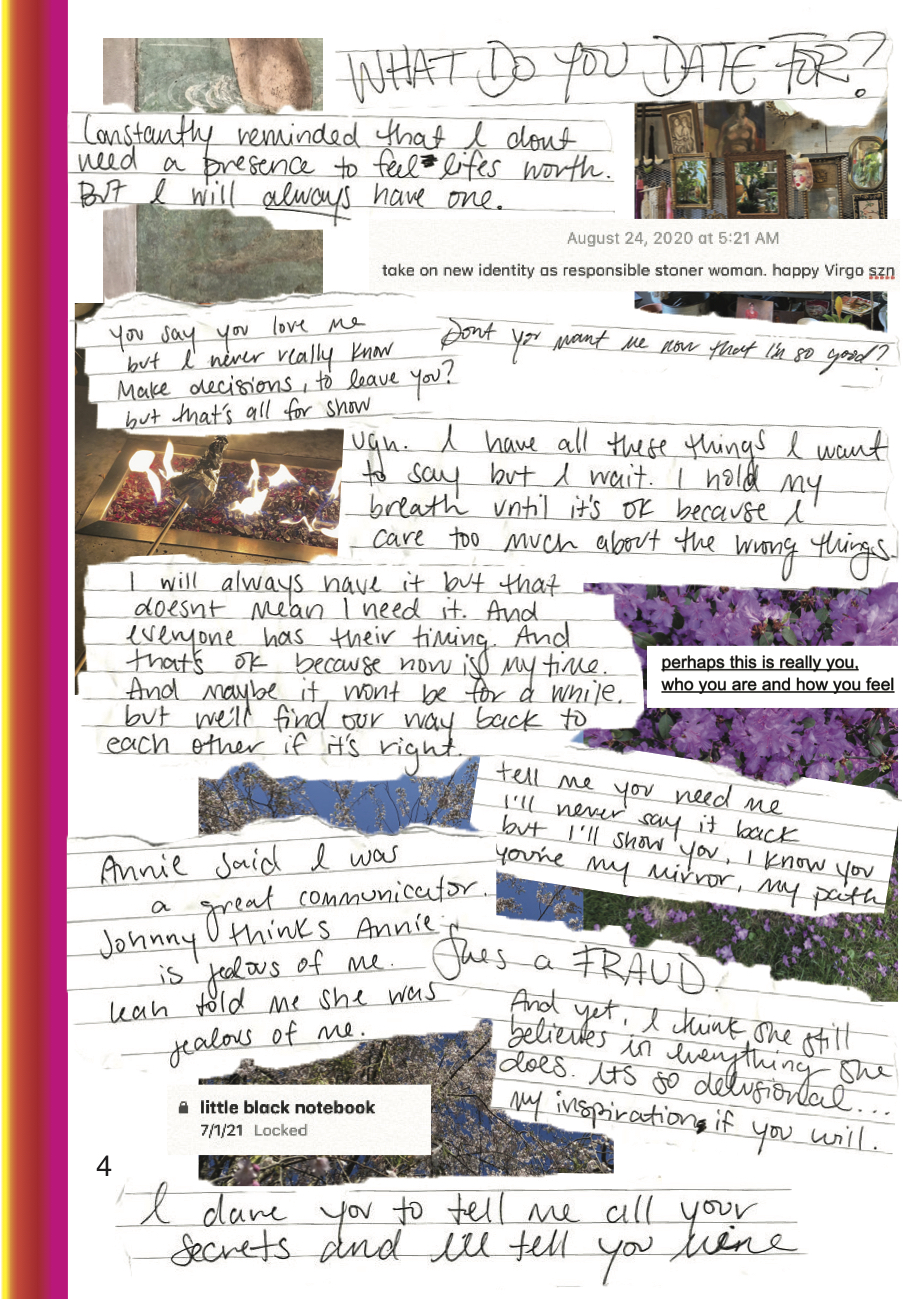 WHAT DO YOU DATE FOR?
Constantly reminded that I dont
need a presence to feel lifes worth.
But I will always have one.
August 24, 2020 at 5:21 AM
take on new identity as responsible stoner woman. happy Virgo szn
you say you love me
but I never really know
Make decisions, to leave you?
but that's all for show
Dont you want me now that i'm so good?
ugh. I have all these things I want
to say but I wait. I hold my
breath until it's ok because I
care too much about the wrong things
I will always have it but that
doesnt mean I need it. And
everyone has their timing. And
that's ok because now is my time.
And maybe it wont be for a while.
but we'll find our way back to
each other if it's right.
perhaps this is really you,
who you are and how you feel
tell me you need me
I'll never say it back
but I'll show you, I know you
you're my mirror, my path
Annie said I was
a great communicator.
Johnny thinks Annie
is jealous of me.
Leah told me she was
jealous of me.
Shes a FRAUD.
And yet, I think she still
believes in everything she
does. Its so delusional...
my inspiration, if you will.
little black notebook
7/1/21 Locked
4
I dare you to tell me all your
secrets and I'll tell you mine